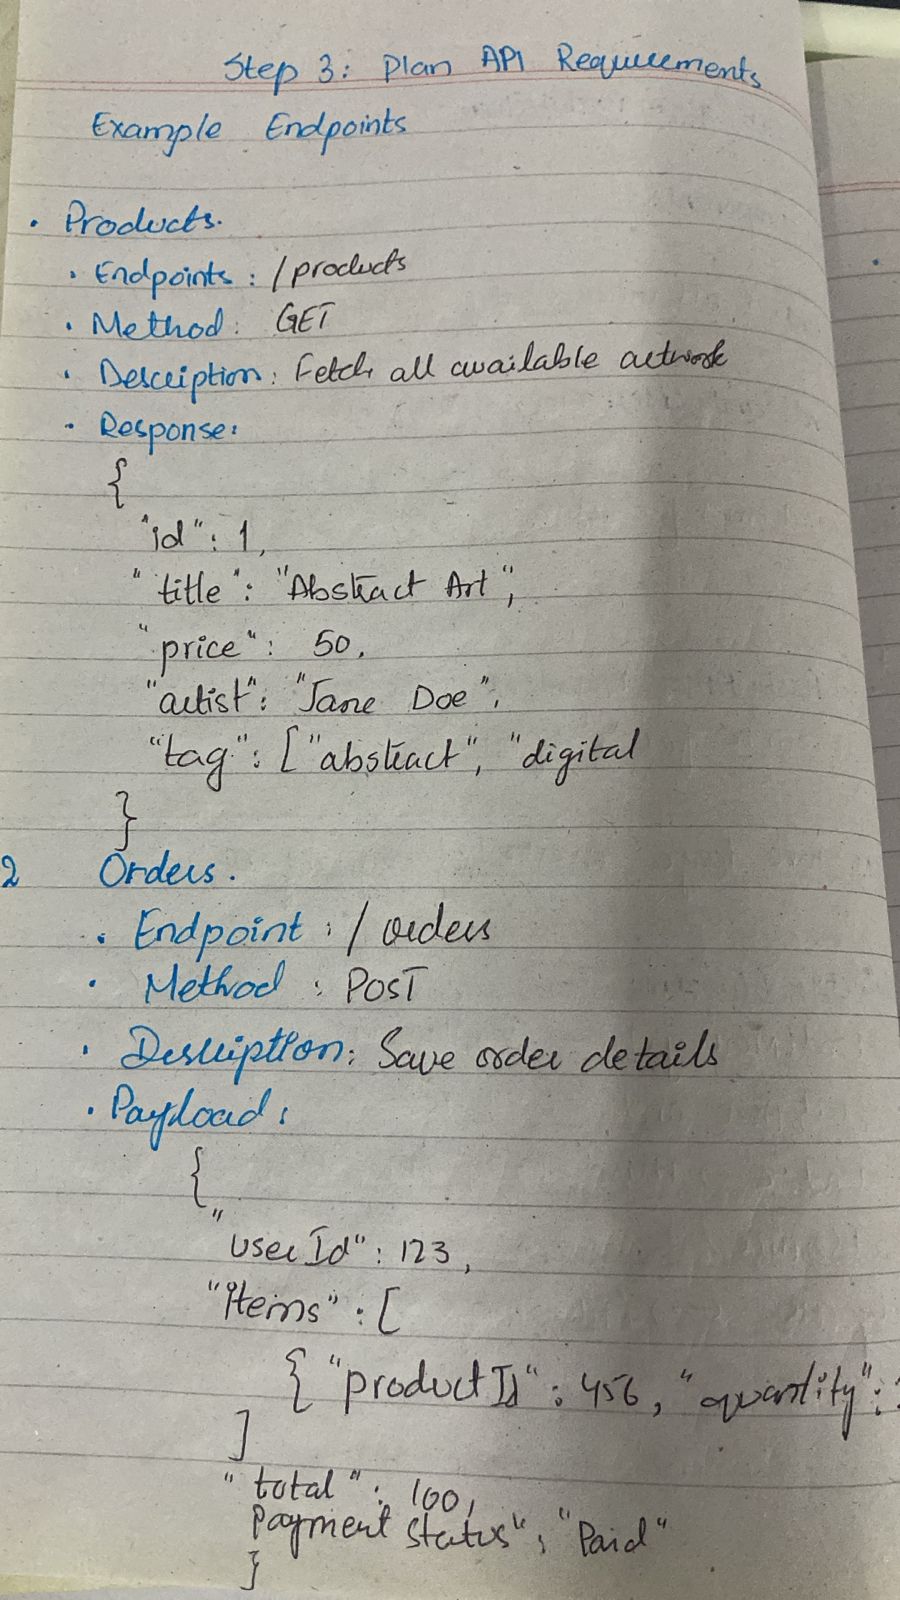 Step 3: Plan API Requirements
Example Endpoints
• Products.
• Endpoints: /products
• Method: GET
• Description: Fetch all available artwork
• Response:
{
"id": 1,
"title": "Abstract Art",
"price": 50,
"artist": "Jane Doe",
"tag": ["abstract", "digital
}
2 Orders.
• Endpoint: /orders
• Method: POST
• Description: Save order details
• Payload:
{
"userId": 123,
"items": [
{ "productId": 456, "quantity":
]
"total": 100,
Payment Status": "Paid"
}